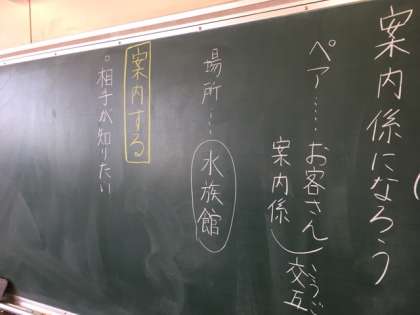 案内係になろう
ペア……お客さん
案内係
交互
こうご
場所…水族館
案内する
○相手が知りたい